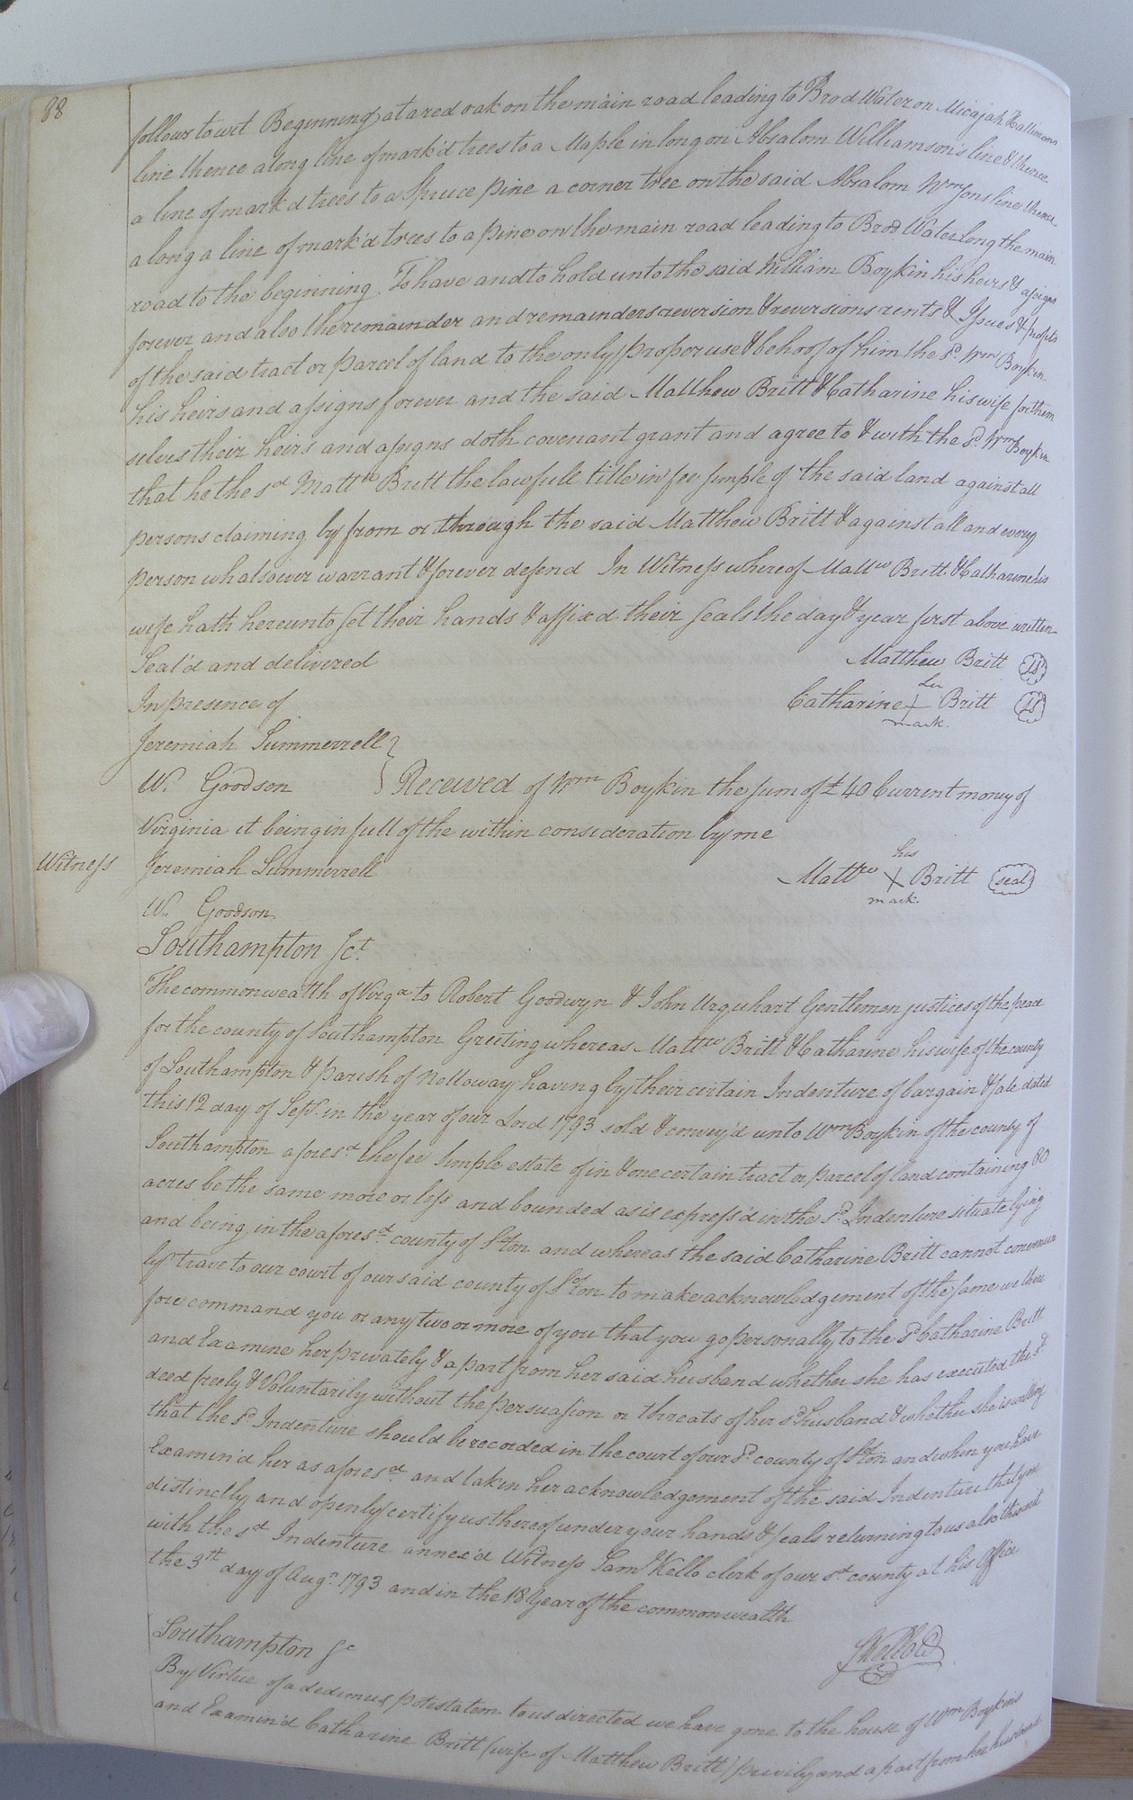 88
follows towit Beginning at a red oak on the main road leading to Brod Water on Micajah
line thence along line of mark'd trees to a Maple in long on Absalom Williamson's line & thence
a line of mark'd trees to a Spruce pine a corner tree on the said Absalom Wmsons line thence
along a line of mark'd trees to a pine on the main road leading to Brod Water long the main
road to the beginning. To have and to hold unto the said William Boykin his heirs & assigns
forever and also the remainder and remainders reversion & reversions rents & Issues & profits
of the said tract or parcel of land to the only proper use & behoof of him the sd. Wm Boykin
his heirs and assigns forever and the said Matthew Britt & Catharine his wife for them
selves their heirs and assigns doth covenant grant and agree to & with the sd. Wm Boykin
that he the sd Matthw Britt the lawfull title in fee simple of the said land against all
persons claiming by from or through the said Matthew Britt & against all and every
person whatsoever warrant & forever defend In Witness whereof Mattw Britt & Catharine his
wife hath hereunto set their hands & affixd their seals the day & year first above written
Seal'd and delivered Matthew Britt LS
In presence of Catharine her + mark. Britt LS
Jeremiah Summerrell }
W. Goodson } Received of Wm Boykin the sum of £40 Current money of
Virginia it being in full of the within consideration by me
Witness Jeremiah Summerrell Mattw his X mark. Britt seal
W. Goodson
Southampton Sct.
The commonwealth of Virga to Robert Goodwyn & John Urquhart Gentlemen justices of the peace
for the county of Southampton Greeting whereas Mattw Britt & Catharine his wife of the county
of Southampton & parish of Nottoway having by their certain Indenture of bargain & sale dated
this 12 day of Sepr. in the year of our Lord 1793 sold & convey'd unto Wm Boykin of the county of
Southampton aforesd the fee simple estate of in & one certain tract or parcel of land containing 80
acres be the same more or less and bounded as is express'd in the sd. Indenture situate lying
and being in the aforesd. county of Ston and whereas the said Catharine Britt cannot convenien
ly trave to our court of our said county of Ston to make acknowledgement of the same we there
fore command you or any two or more of you that you go personally to the sd Catharine Britt
and Examine her privately & apart from her said husband whether she has executed the sd
deed freely & Voluntarily without the persuasion or threats of her sd husband & whether she is willing
that the sd. Indenture should be recorded in the court of our sd. county of Ston and when you have
Examin'd her as aforesd. and taken her acknowledgement of the said Indenture that you
distinctly and openly certify us thereof under your hands & seals returning to us also this writ
with the sd Indenture annex'd Witness Saml Kello clerk of our sd county at his Office
the 3th day of Augt. 1793 and in the 18 Year of the commonwealth
Southampton Sc S Kello C
By Virtue of a dedimus potestatem to us directed we have gone to the house of Wm Boykins
and Examin'd Catharine Britt (wife of Matthew Britt) privily and apart from her husband